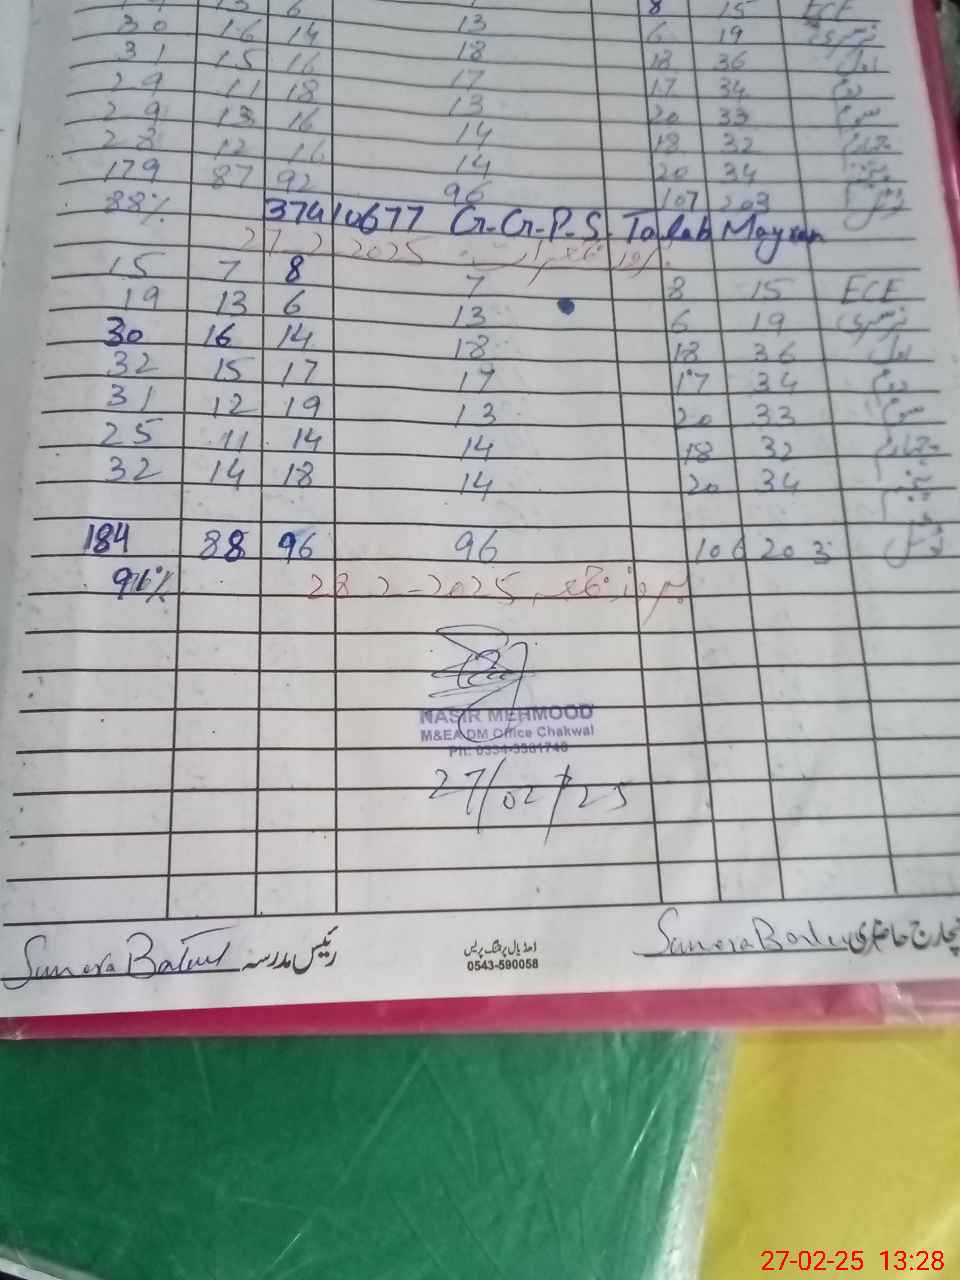 30 16 14 13 6 19
31 15 16 18 18 36 اول
29 11 18 17 17 34 دوم
29 13 16 13 20 33 سوم
28 12 16 14 18 32 چہارم
179 87 92 14 20 34 پنجم
88% 96 107 203
37410677 G.G.P.S. Talab Mayran
27 2 2025
15 7 8 7 8 15 ECE
19 13 6 13 6 19 نرسری
30 16 14 18 18 36 اول
32 15 17 17 17 34 دوم
31 12 19 13 20 33 سوم
25 11 14 14 18 32 چہارم
32 14 18 14 20 34 پنجم
184 88 96 96 106 203
28 2-2025
NASIR MEHMOOD
M&EA DM Office Chakwal
27/02/25
رئیس مدرسہ
0543-590058
انچارج حاضری
27-02-25 13:28